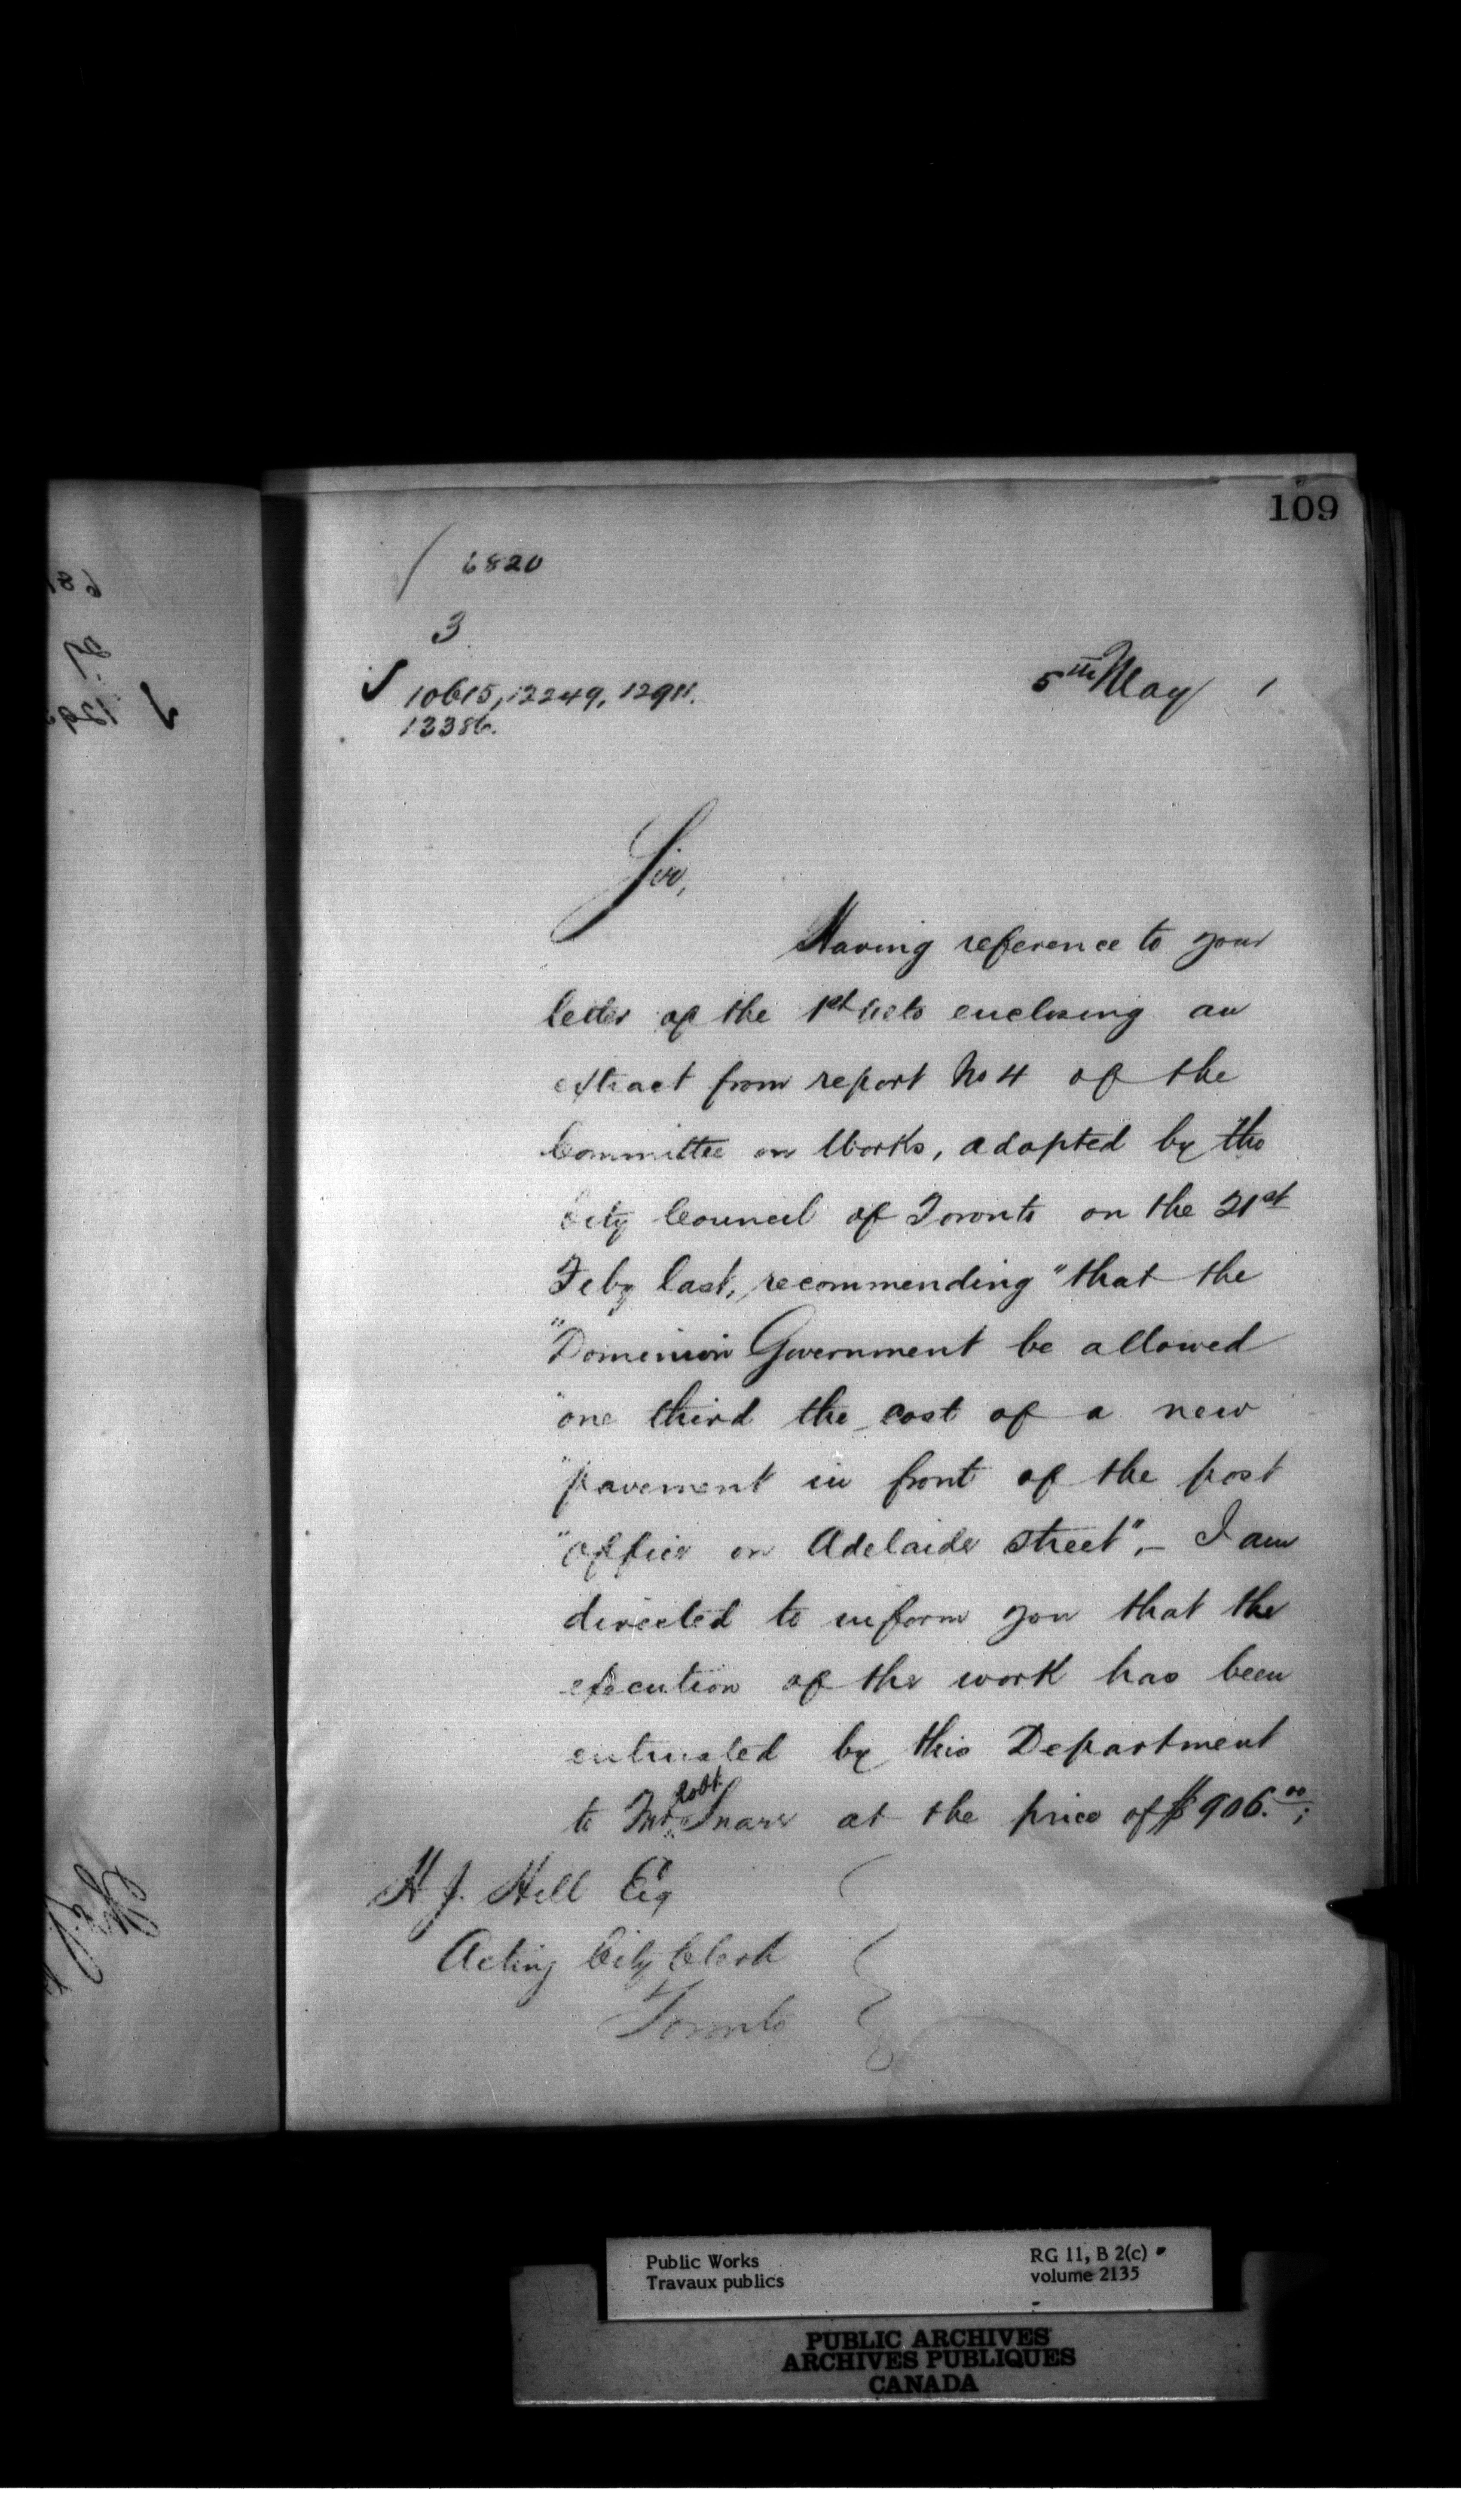 109
6820
3
10615, 12249, 12911.
13386.
5th May 1
Sir,
Having reference to your
letter of the 1st ulto enclosing an
extract from report No 4 of the
Committee on Works, adopted by the
City Council of Toronto on the 21st
Feby last, recommending "that the
"Dominion Government be allowed
"one third the cost of a new
"pavement in front of the post
"office on Adelaide street", - I am
directed to inform you that the
execution of the work has been
entrusted by this Department
to Mr. Robt. Snarr at the price of $906.00;
H J. Hill Esq
Acting City Clerk
Toronto
Public Works
Travaux publics
RG 11, B 2(c)
volume 2135
PUBLIC ARCHIVES
ARCHIVES PUBLIQUES
CANADA